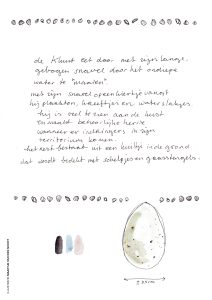 de kluut eet door met zijn lange,
gebogen snavel door het ondiepe
water te "maaien"
met zijn snavel open vangt
hij plankton, kreeftjes en waterslakjes.
hij is veel te zien aan de kust
en maakt behoorlijke herrie
wanneer er indringers in zijn
territorium komen.
het nest bestaat uit een kuiltje in de grond
dat wordt bedekt met schelpjes en grasstengels.